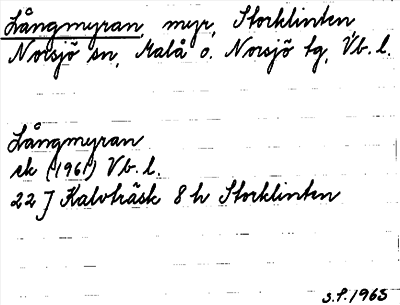 Långmyran, myr, Storklinten
Norsjö sn, Malå o. Norsjö tg, Vb. l.
Långmyran
ek (1961) Vb. l.
22 J Kalvträsk 8 h Storklinten
S.P. 1965